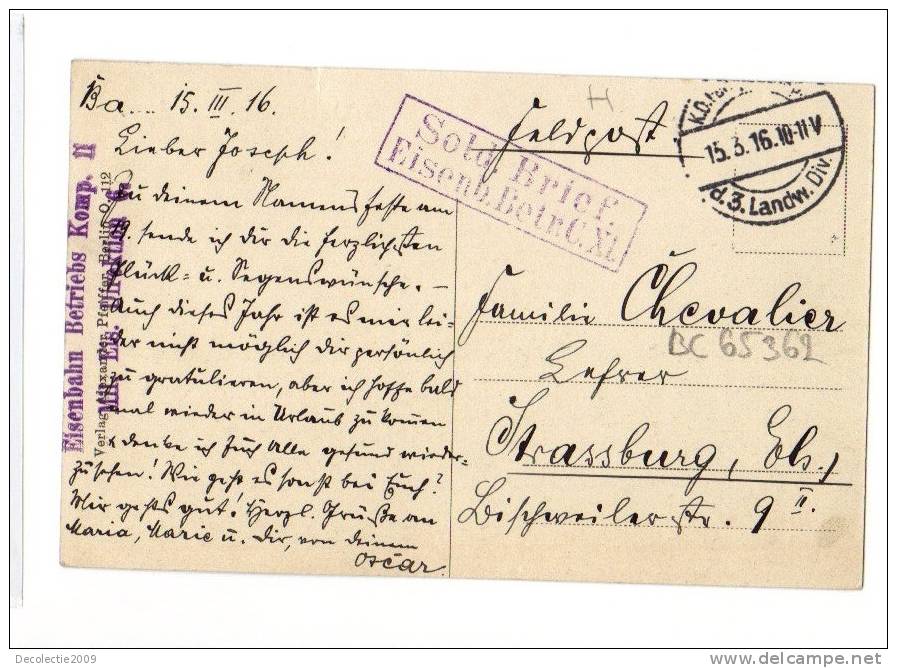 Ba.... 15. III. 16.
Lieber Joseph!
Zu deinem Namensfeste am
19. sende ich dir die herzlichsten
Glück- u. Segenswünsche. —
Auch dieses Jahr ist es mir lei-
der nicht möglich dir persönlich
zu gratulieren, aber ich hoffe bald
mal wieder in Urlaub zu kommen
& denke ich Euch Alle gesund wieder-
zusehen! Wie geht es sonst bei Euch?
Mir gehts gut! Herzl. Grüße an
Maria, Marie u. Dir, von deinem
Oscar.
Eisenbahn Betriebs Komp. 11
Verlag Alexander Pfeiffer, Berlin O. 112
Sold. Brief.
Eisenb. Betr. C. XI.
Feldpost
15.3.16.10-11V
d. 3. Landw. Div.
Familie Chevalier
BC 65362
Lehrer
Strassburg, Els.,
Bischweilerstr. 9 II.
Decolectie2009
delcampe.net